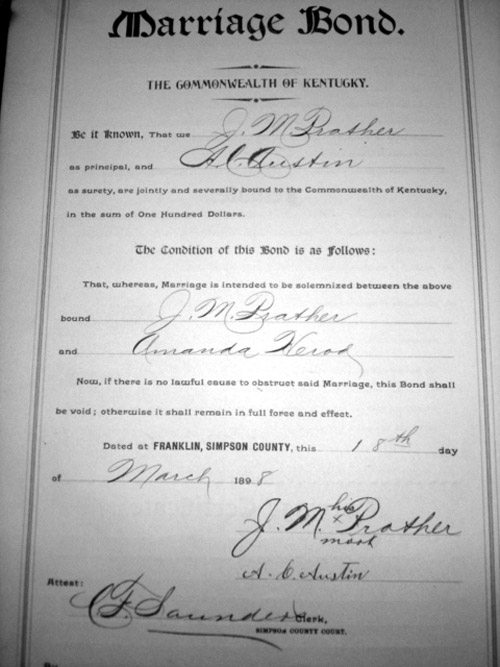 Marriage Bond.
THE COMMONWEALTH OF KENTUCKY.
Be it Known, That we J. M. Prather
as principal, and A. C. Austin
as surety, are jointly and severally bound to the Commonwealth of Kentucky,
in the sum of One Hundred Dollars.
The Condition of this Bond is as Follows:
That, whereas, Marriage is intended to be solemnized between the above
bound J. M. Prather
and Amanda Herod
Now, if there is no lawful cause to obstruct said Marriage, this Bond shall
be void; otherwise it shall remain in full force and effect.
Dated at FRANKLIN, SIMPSON COUNTY, this 18th day
of March 1898
his
J. M. x Prather
mark
A. C. Austin
Attest:
C. F. Saunders Clerk,
SIMPSON COUNTY COURT.